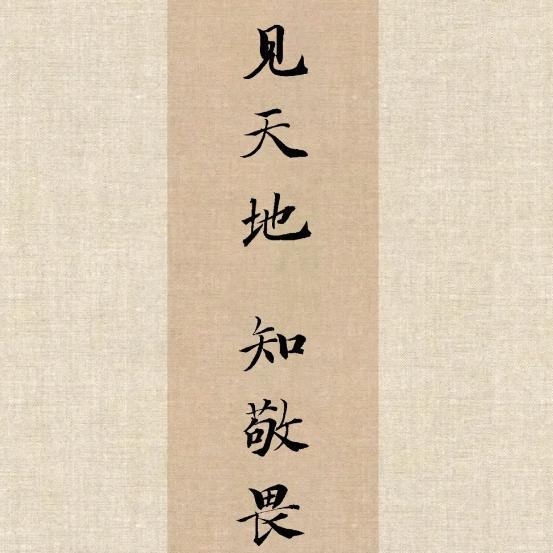 见天地 知敬畏